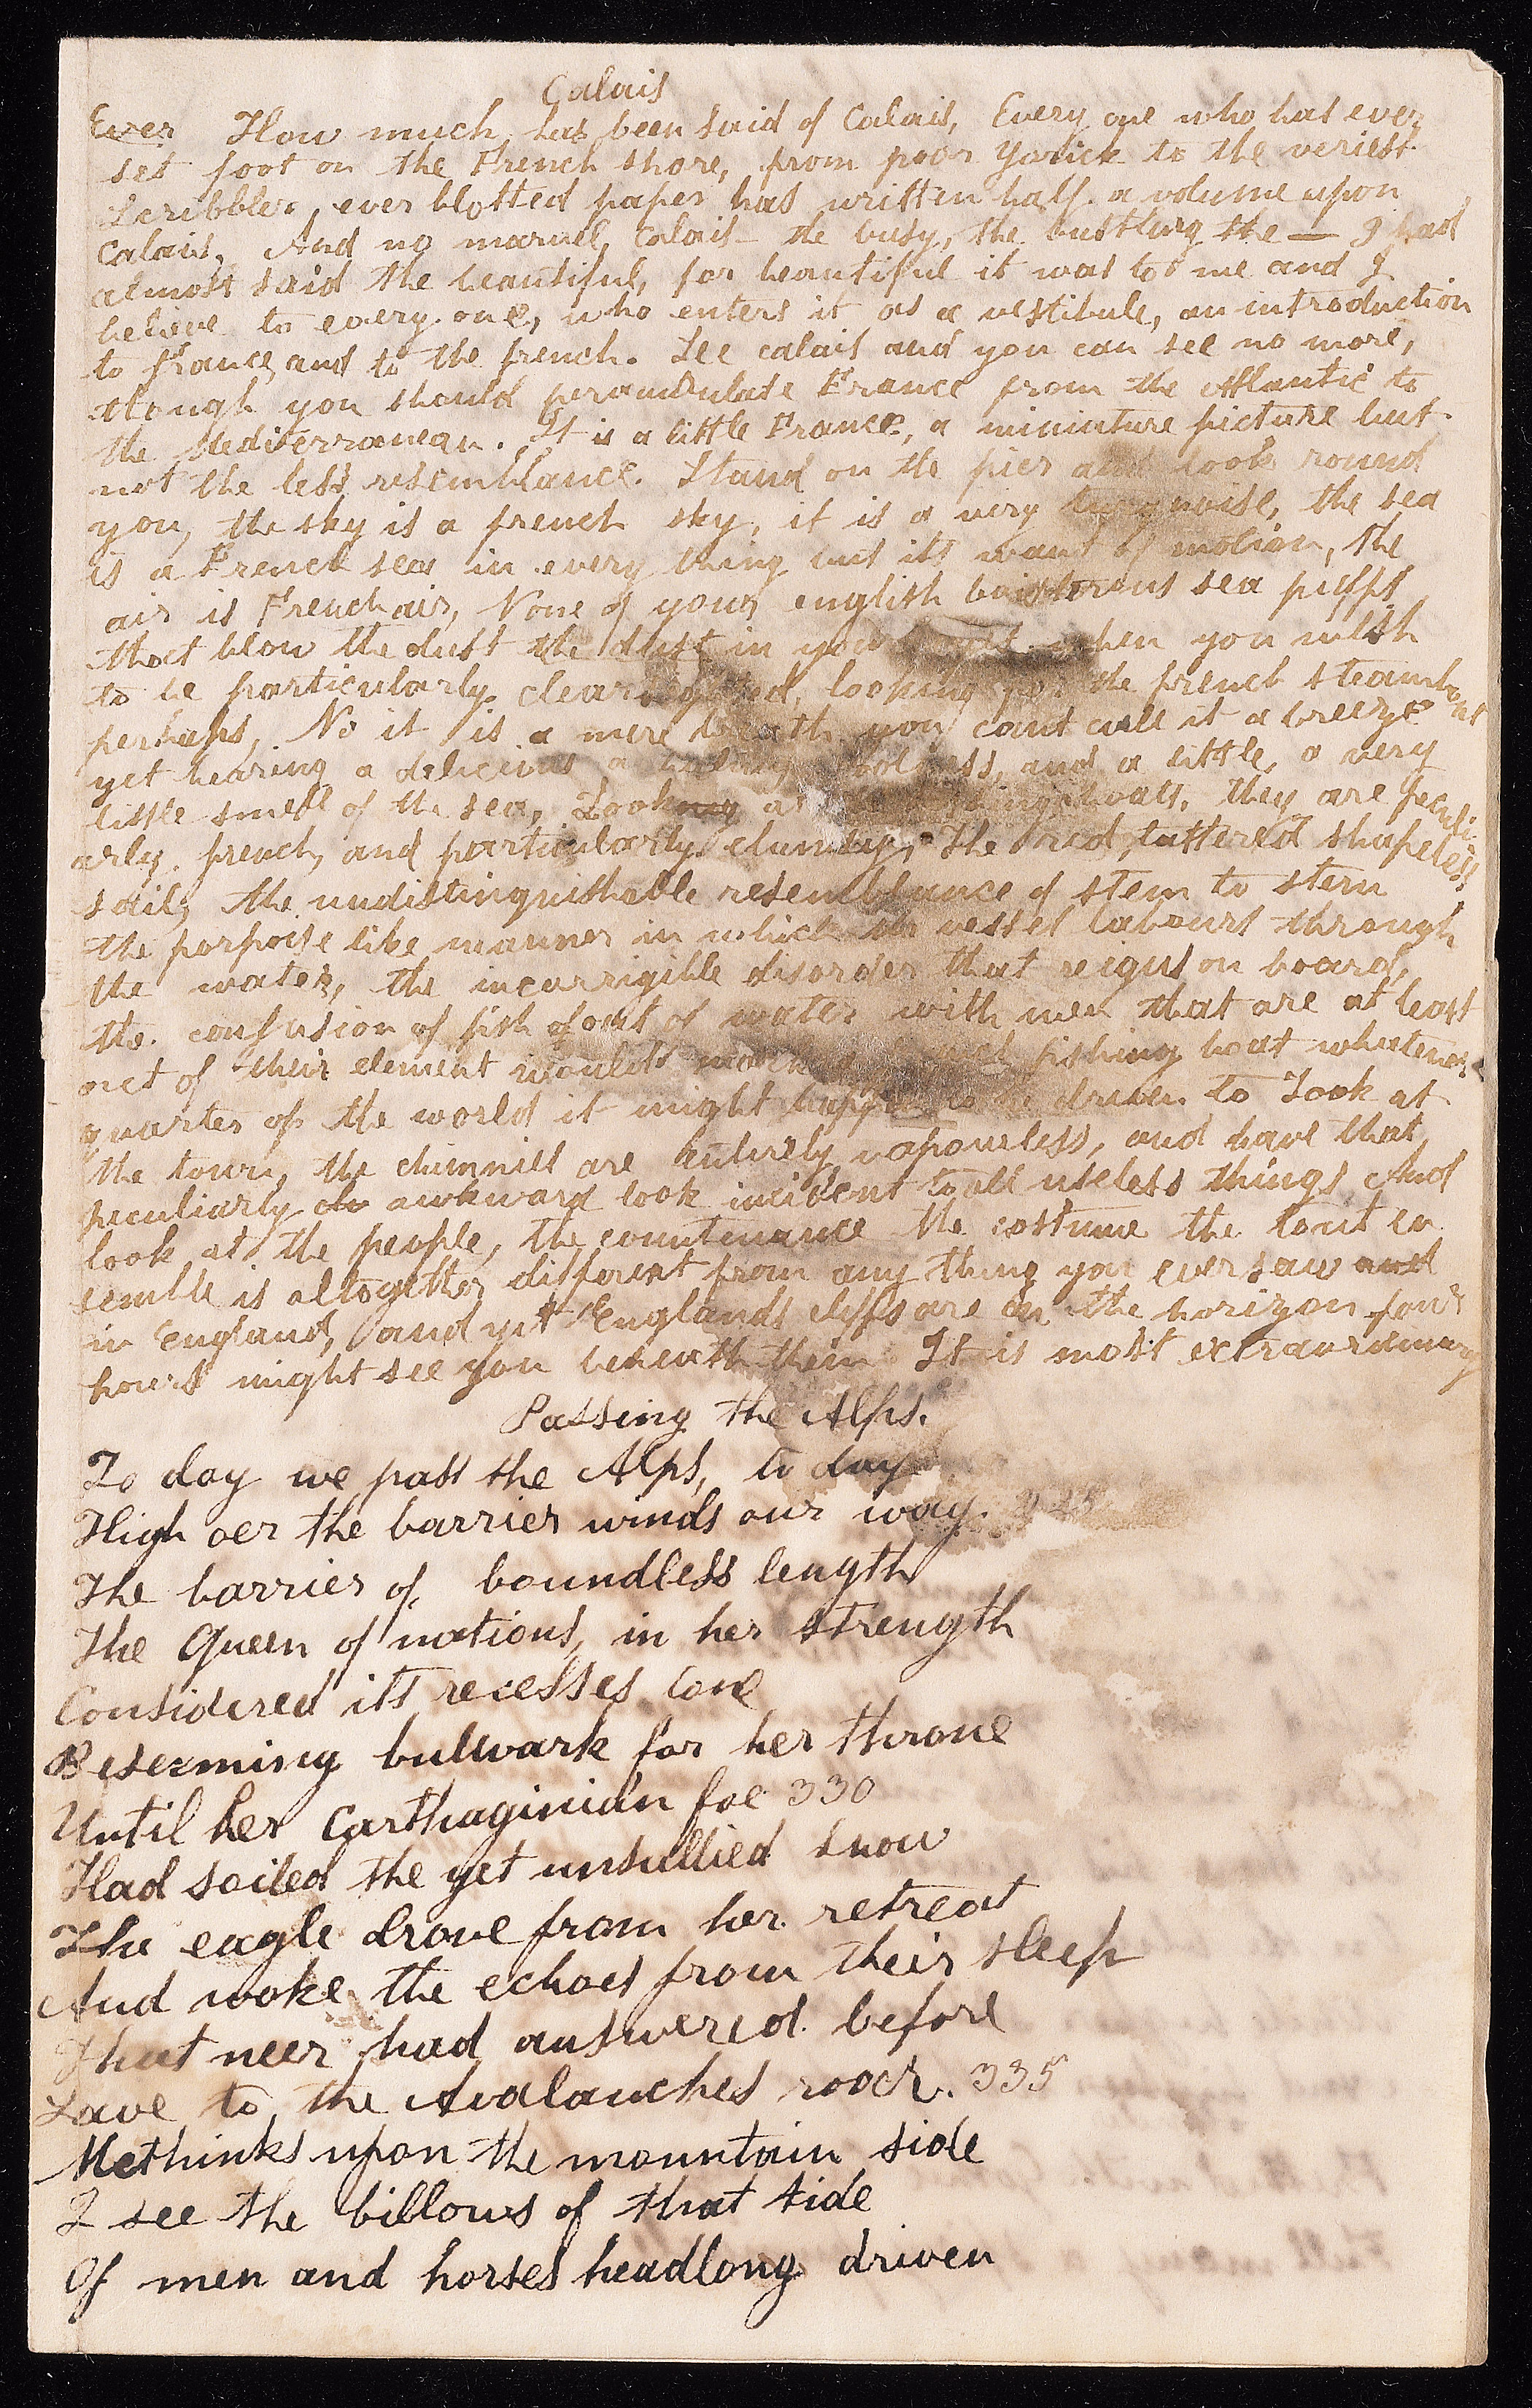 Calais
Ever How much has been said of Calais, Every one who has ever
set foot on the French shore, from poor Yorick to the veriest
scribbler, ever blotted paper has written half a volume upon
Calais, And no marvel, Calais the busy, the bustling the — I had
almost said the beautiful, for beautiful it was to me and I
believe to every one, who enters it as a vestibule, an introduction
to France, and to the french. See calais and you can see no more,
though you should perambulate France from the Atlantic to
the Mediterranean. It is a little France, a miniature picture but
not the less resemblance. Stand on the pier and look round
you, the sky is a french sky, it is a very turquoise, the sea
is a French sea in every thing but its want of motion, the
air is French air, None of your english boisterous sea puffs
that blow the dust the dust in your when you wish
to be particularly clear sighted, looking for the french steamboat
perhaps, No it is a mere breath you cant call it a breeze
yet bearing a delicious a coolness, and a little, a very
little smell of the sea, Looking at fishing boats, they are peculi
arly french, and particularly clumsy, The red, tattered shapeless
sail, the undistinguishable resemblance of stem to stern
the porpoise like manner in which the vessel labours through
the water, the incorrigible disorder that reigns on board,
the confusion of fish of out of water with men that are at least
out of their element would mark a french fishing boat whatever
quarter of the world it might happen to be driven to Look at
the town, the chimnies are entirely vapourless, and have that
peculiarly awkward look incident to all useless things And
look at the people, the countenance the costume the tout en
semble is altogether different from any thing you ever saw and
in England, and yet Englands cliffs are on the horizon four
hours might see you beneath them It is most extraordinary
Passing the Alps.
To day we pass the Alps, to day
High oer the barrier winds our way. 325
The barrier of, boundless length
The Queen of nations, in her strength
Considered its recesses lone
Beseeming bulwark for her throne
Until her Carthaginian foe 330
Had soiled the yet unsullied snow
The eagle drove from her retreat
And woke the echoes from their sleep
That neer had answered before
Save to the Avalanches roar. 335
Methinks upon the mountain side
I see the billows of that tide
Of men and horses headlong driven